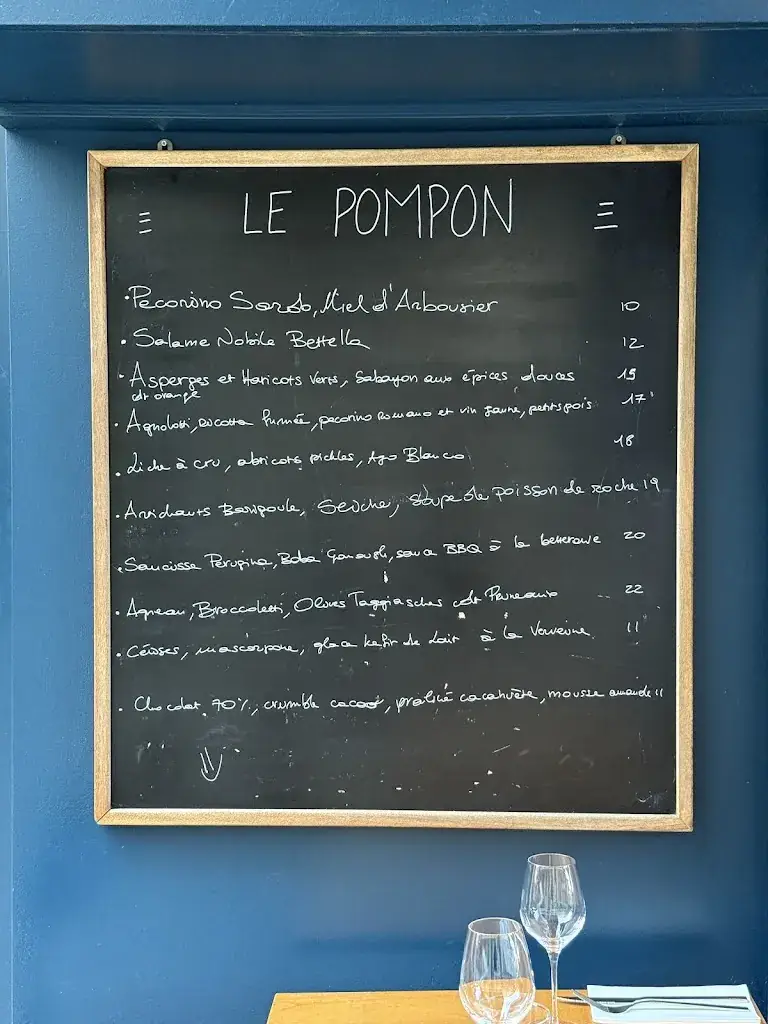 LE POMPON
• Pecorino Sardo, Miel d'Arbousier 10
• Salame Nobile Bettella 12
• Asperges et Haricots Verts, Sabayon aux épices douces 15
et orange
17
• Agnolotti, ricotta fumée, pecorino Romano et vin jaune, petits pois
18
• Liche à cru, abricots pickles, Ajo Blanco
• Artichauts Barigoule, Seiches, Soupe de poisson de roche 19
• Saucisse Perugina, Baba Ganoush, sauce BBQ à la betterave 20
• Agneau, Broccoletti, Olives Taggiasches et Pruneaux 22
• Cerises, mascarpone, glace kefir de lait à la Verveine 11
• Chocolat 70%, crumble cacao, praliné cacahuète, mousse amande 11